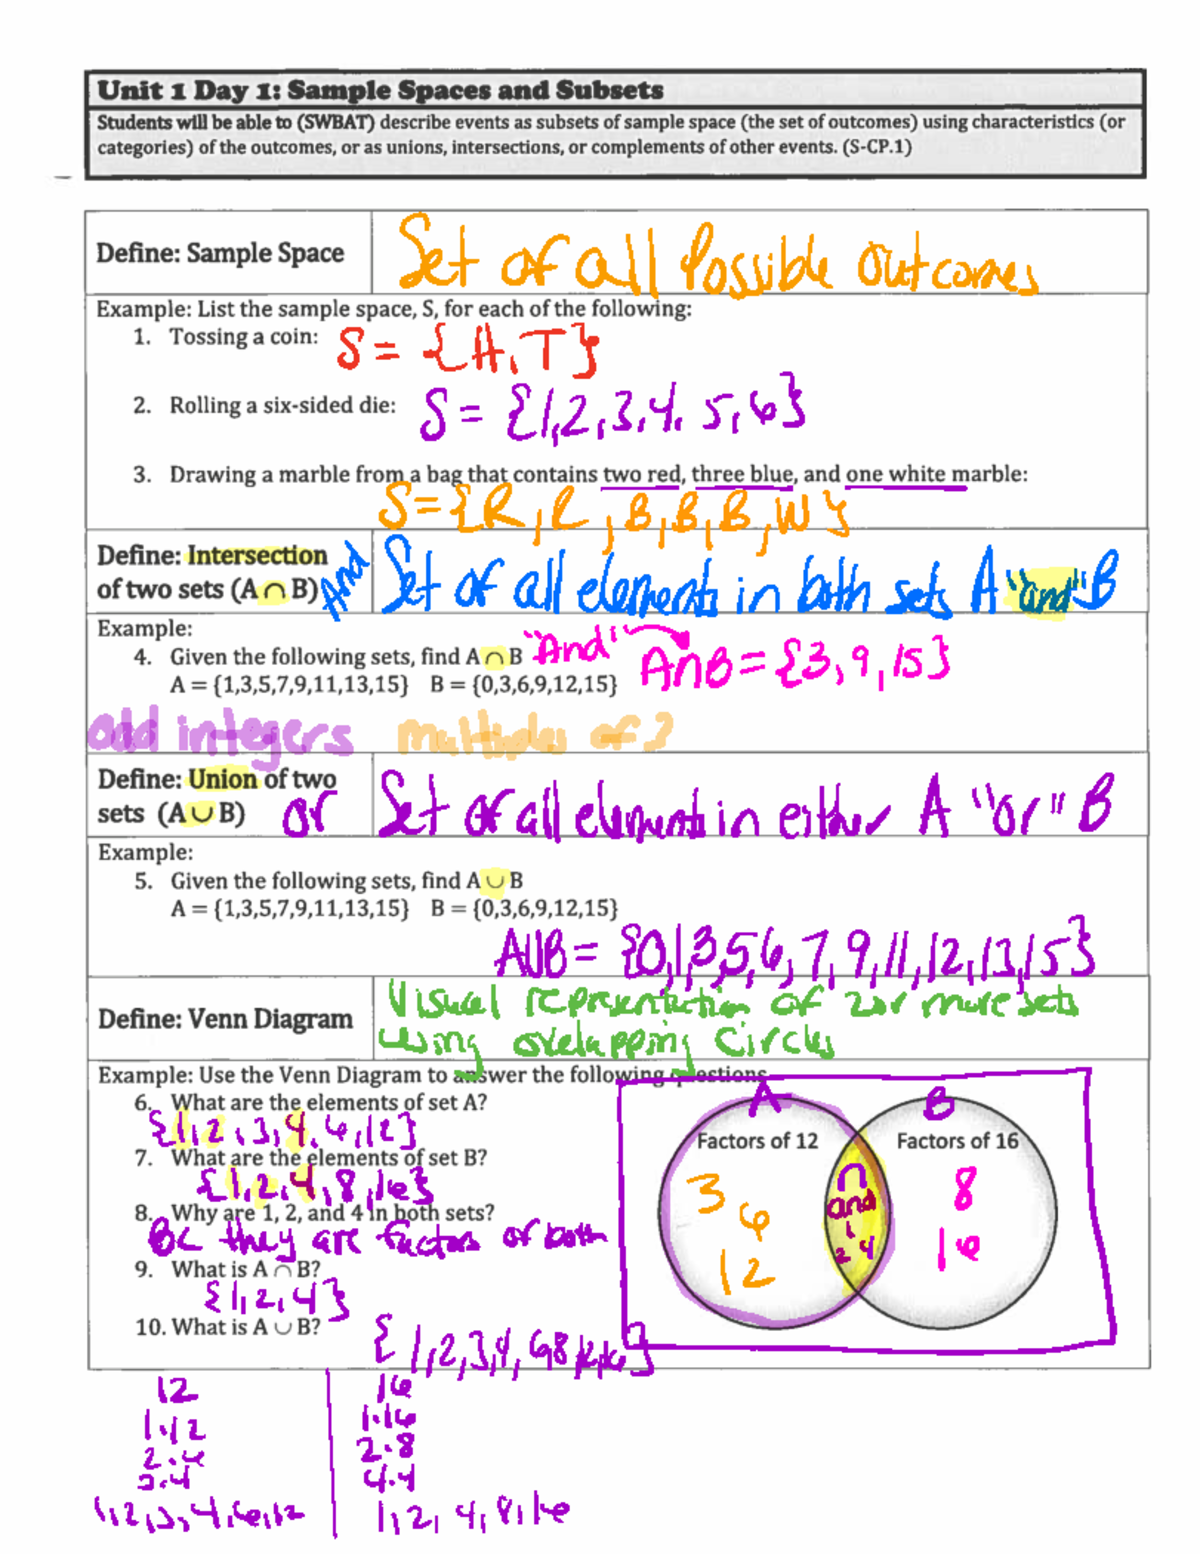 Unit 1 Day 1: Sample Spaces and Subsets
Students will be able to (SWBAT) describe events as subsets of sample space (the set of outcomes) using characteristics (or
categories) of the outcomes, or as unions, intersections, or complements of other events. (S-CP.1)
Define: Sample Space
Set of all Possible Outcomes
Example: List the sample space, S, for each of the following:
1. Tossing a coin: S = {H, T}
2. Rolling a six-sided die: S = {1,2,3,4, 5,6}
3. Drawing a marble from a bag that contains two red, three blue, and one white marble:
S={R, R, B, B, B, W}
Define: Intersection
of two sets (A ∩ B) And
Set of all elements in both sets A "and" B
Example:
4. Given the following sets, find A ∩ B "And" A∩B = {3, 9, 15}
A = {1,3,5,7,9,11,13,15} B = {0,3,6,9,12,15}
odd integers multiples of 3
Define: Union of two
sets (A ∪ B) or
Set of all elements in either A "or" B
Example:
5. Given the following sets, find A ∪ B
A = {1,3,5,7,9,11,13,15} B = {0,3,6,9,12,15}
AUB = {0,1,3,5,6,7,9,11,12,13,15}
Define: Venn Diagram
Visual representation of 2 or more sets
using overlapping circles
Example: Use the Venn Diagram to answer the following questions
6. What are the elements of set A?
{1,2,3,4,6,12}
7. What are the elements of set B?
{1,2,4,8,16}
8. Why are 1, 2, and 4 in both sets?
BC they are factors of both
9. What is A ∩ B?
{1,2,4}
10. What is A ∪ B? {1,2,3,4,6,8,12,16}
A B
Factors of 12 Factors of 16
3 6 12
∩
and
1
2 4
8
16
12
1·12
2·6
3·4
1,2,3,4,6,12
16
1·16
2·8
4·4
1,2,4,8,16